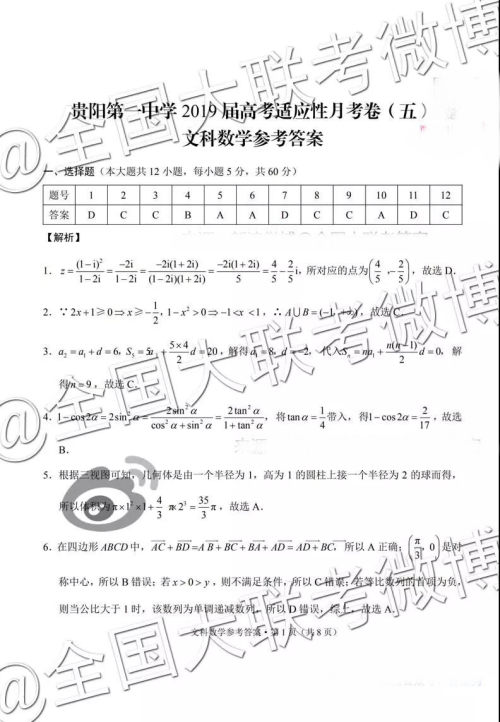 贵阳第一中学 2019 届高考适应性月考卷（五）
文科数学参考答案
一、选择题（本大题共 12 小题，每小题 5 分，共 60 分）
题号 1 2 3 4 5 6 7 8 9 10 11 12
答案 D C C B A A D C C A D C
【解析】
1．z=(1−i)²/(1−2i)=−2i/(1−2i)=−2i(1+2i)/((1−2i)(1+2i))=−2i(1+2i)/5=4/5−2/5 i，所对应的点为(4/5，−2/5)，故选 D．
2．∵2x+1≥0⇒x≥−1/2，1−x²>0⇒−1<x<1，∴A∪B=(−1，+∞)，故选 C．
3．a₂=a₁+d=6，S₅=5a₁+(5×4)/2 d=20，解得a₁=8，d=−2，代入Sₙ=na₁+n(n−1)/2 d=0，解
得n=9，故选 C．
4．1−cos2α=2sin²α=2sin²α/(cos²α+sin²α)=2tan²α/(1+tan²α)，将tanα=1/4带入，得1−cos2α=2/17，故选
B．
5．根据三视图可知，几何体是由一个半径为 1，高为 1 的圆柱上接一个半径为 2 的球而得，
所以体积为π×1²×1+4/3 π×2³=35/3 π，故选 A．
6．在四边形 ABCD 中，AC+BD=AB+BC+BA+AD=AD+BC，所以 A 正确；(π/3，0)是对
称中心，所以 B 错误；若x>0>y，则不满足条件，所以 C 错误；若等比数列的首项为负，
则当公比大于 1 时，该数列为单调递减数列，所以 D 错误，综上，故选 A．
文科数学参考答案·第 1 页（共 8 页）
@全国大联考微博
@全国大联考微博
@全国大联考微博